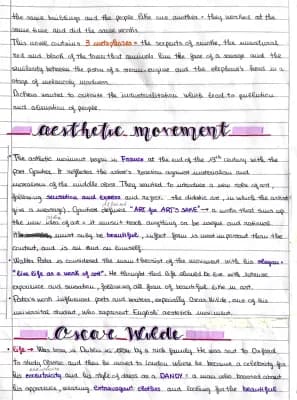 the same buildings and the people like one another - they worked at the
same time and did the same works.
This work contains 3 metaphores = the serpents of smoke, the unnatural
red and black of the town that reminds like the face of a savage and the
similarity between the piston of a steam-engine and the elephant's head in a
state of melancholy madness.
Dickens wanted to criticize the industrialization which lead to pollution
and alienation of people.
aesthetic movement
• The aesthetic movement began in France at the end of the 19th century with the
poet Gautier. It reflects the artist's reaction against materialism and
moralism of the middle class. They wanted to introduce a new role of art,
following sensation and express and reject the didactic aim, in which art
give a message). Gautier defined "ART for ART'S SAKE" → a words that sums up
the new idea of art = it mustn't teach anything, be unique and rational
It must only be beautiful, infact form is most important than the
content, and is an end on himself.
• Walter Pater is considered the main theorist of the movement with his slogan =
"live life as a work of art". He thought that life should be live with intense
experience and sensation, following all form of beautiful like in art.
• Pater's work influenced poets and writers, especially Oscar Wilde, one of his
universitat student, who represent English aesthetic movement.
Oscar Wilde
• Life → Was born in Dublin in by a rich family. He was sent to Oxford
to study Classic and then he moved to London where he became a celebrity for
his eccentricity and his style of dress as a DANDY = a man who boasted about
his appearance, wearing extravagant clothes and looking for the beautiful